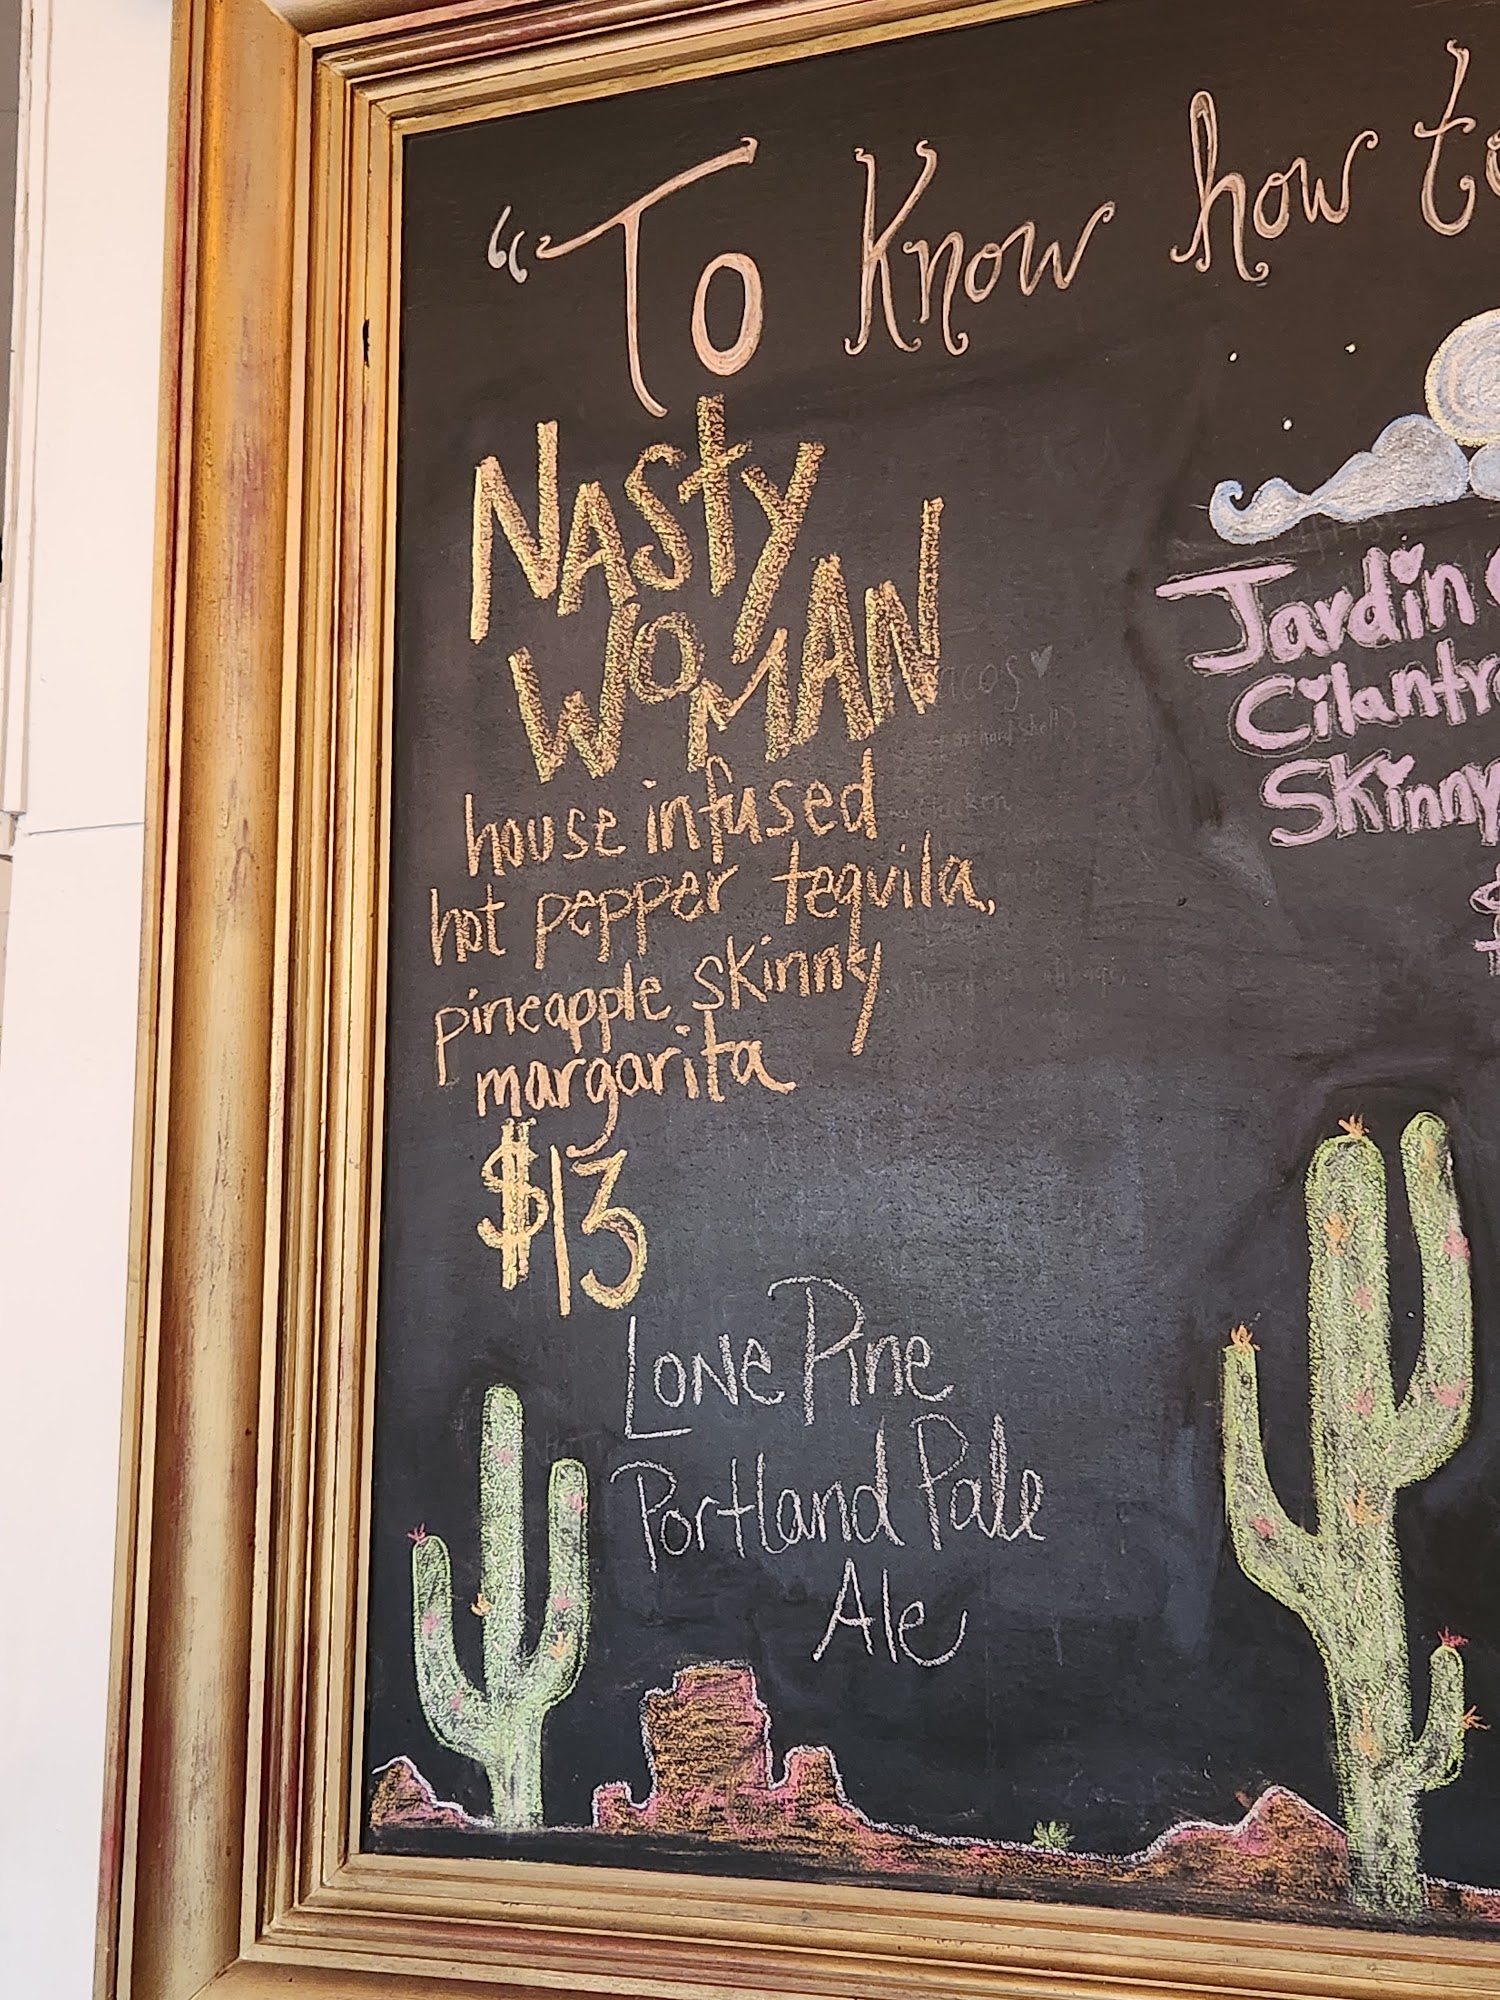 "To Know how to
NASTY
WOMAN
house infused
hot pepper tequila,
pineapple skinny
margarita
$13
Lone Pine
Portland Pale
Ale
Jardin
Cilantro
Skinny